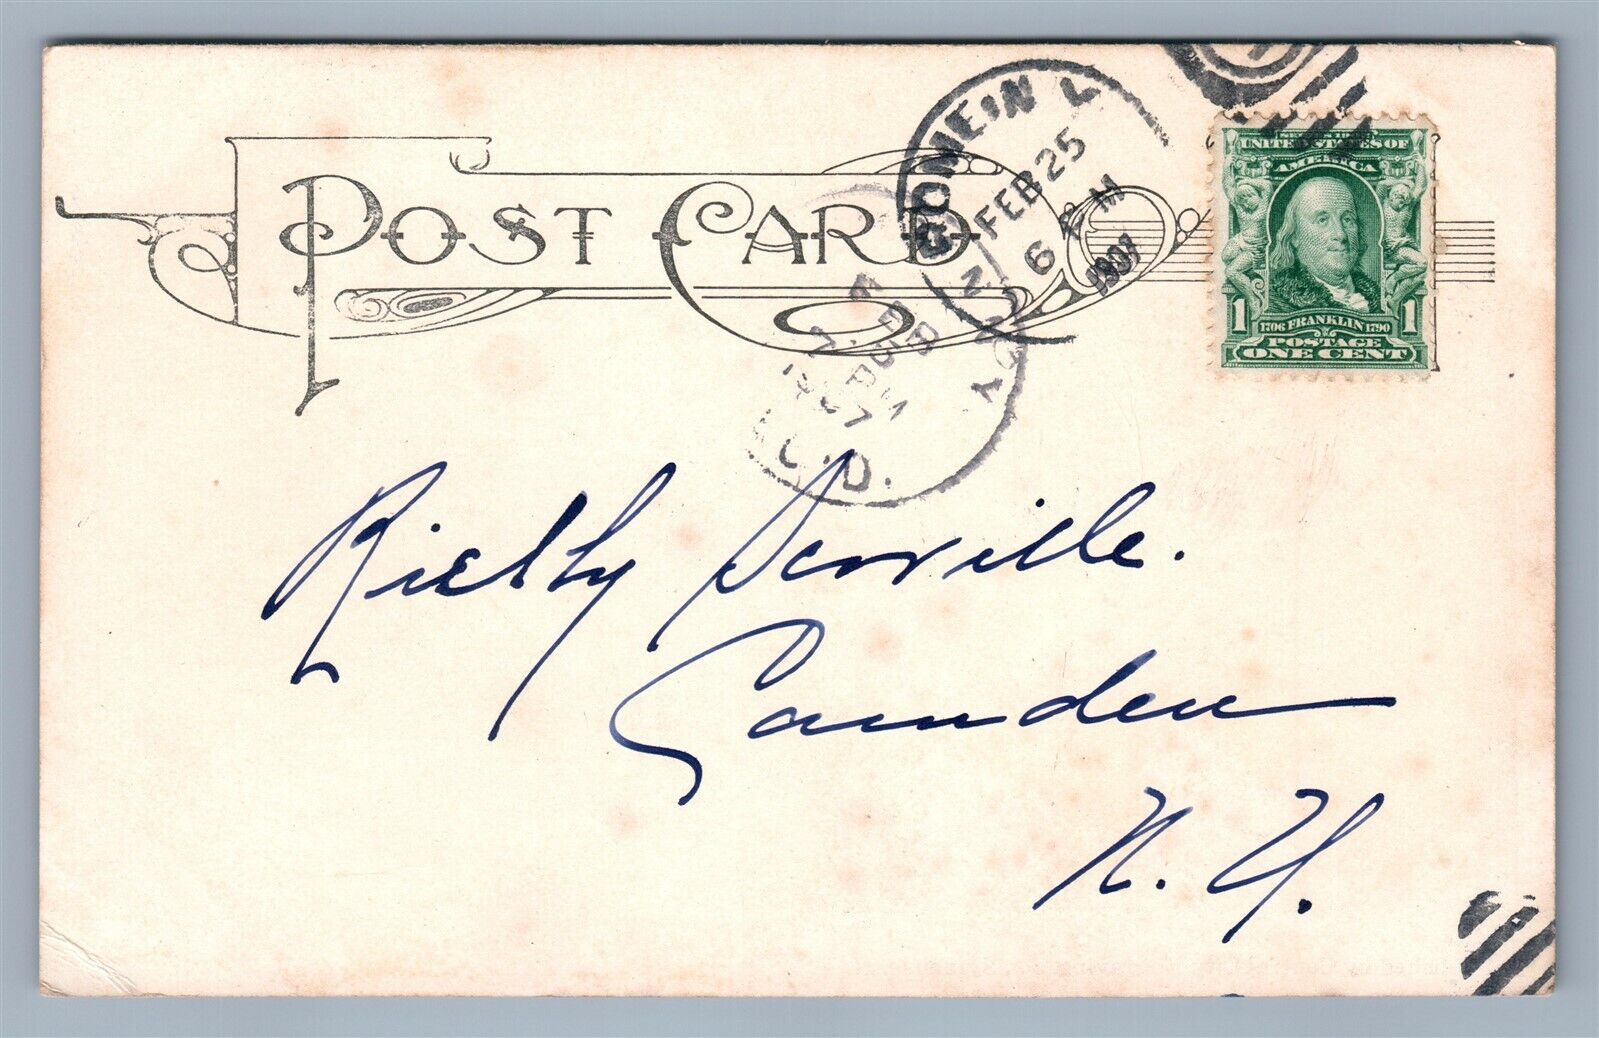 POST CARD
ROME, N.Y.
FEB 25
6
M
1907
FEB
PM
1907
C.D.
SERIES 1902
UNITED STATES OF
AMERICA
1 1
1706 FRANKLIN 1790
POSTAGE
ONE CENT
Camden
N. Y.